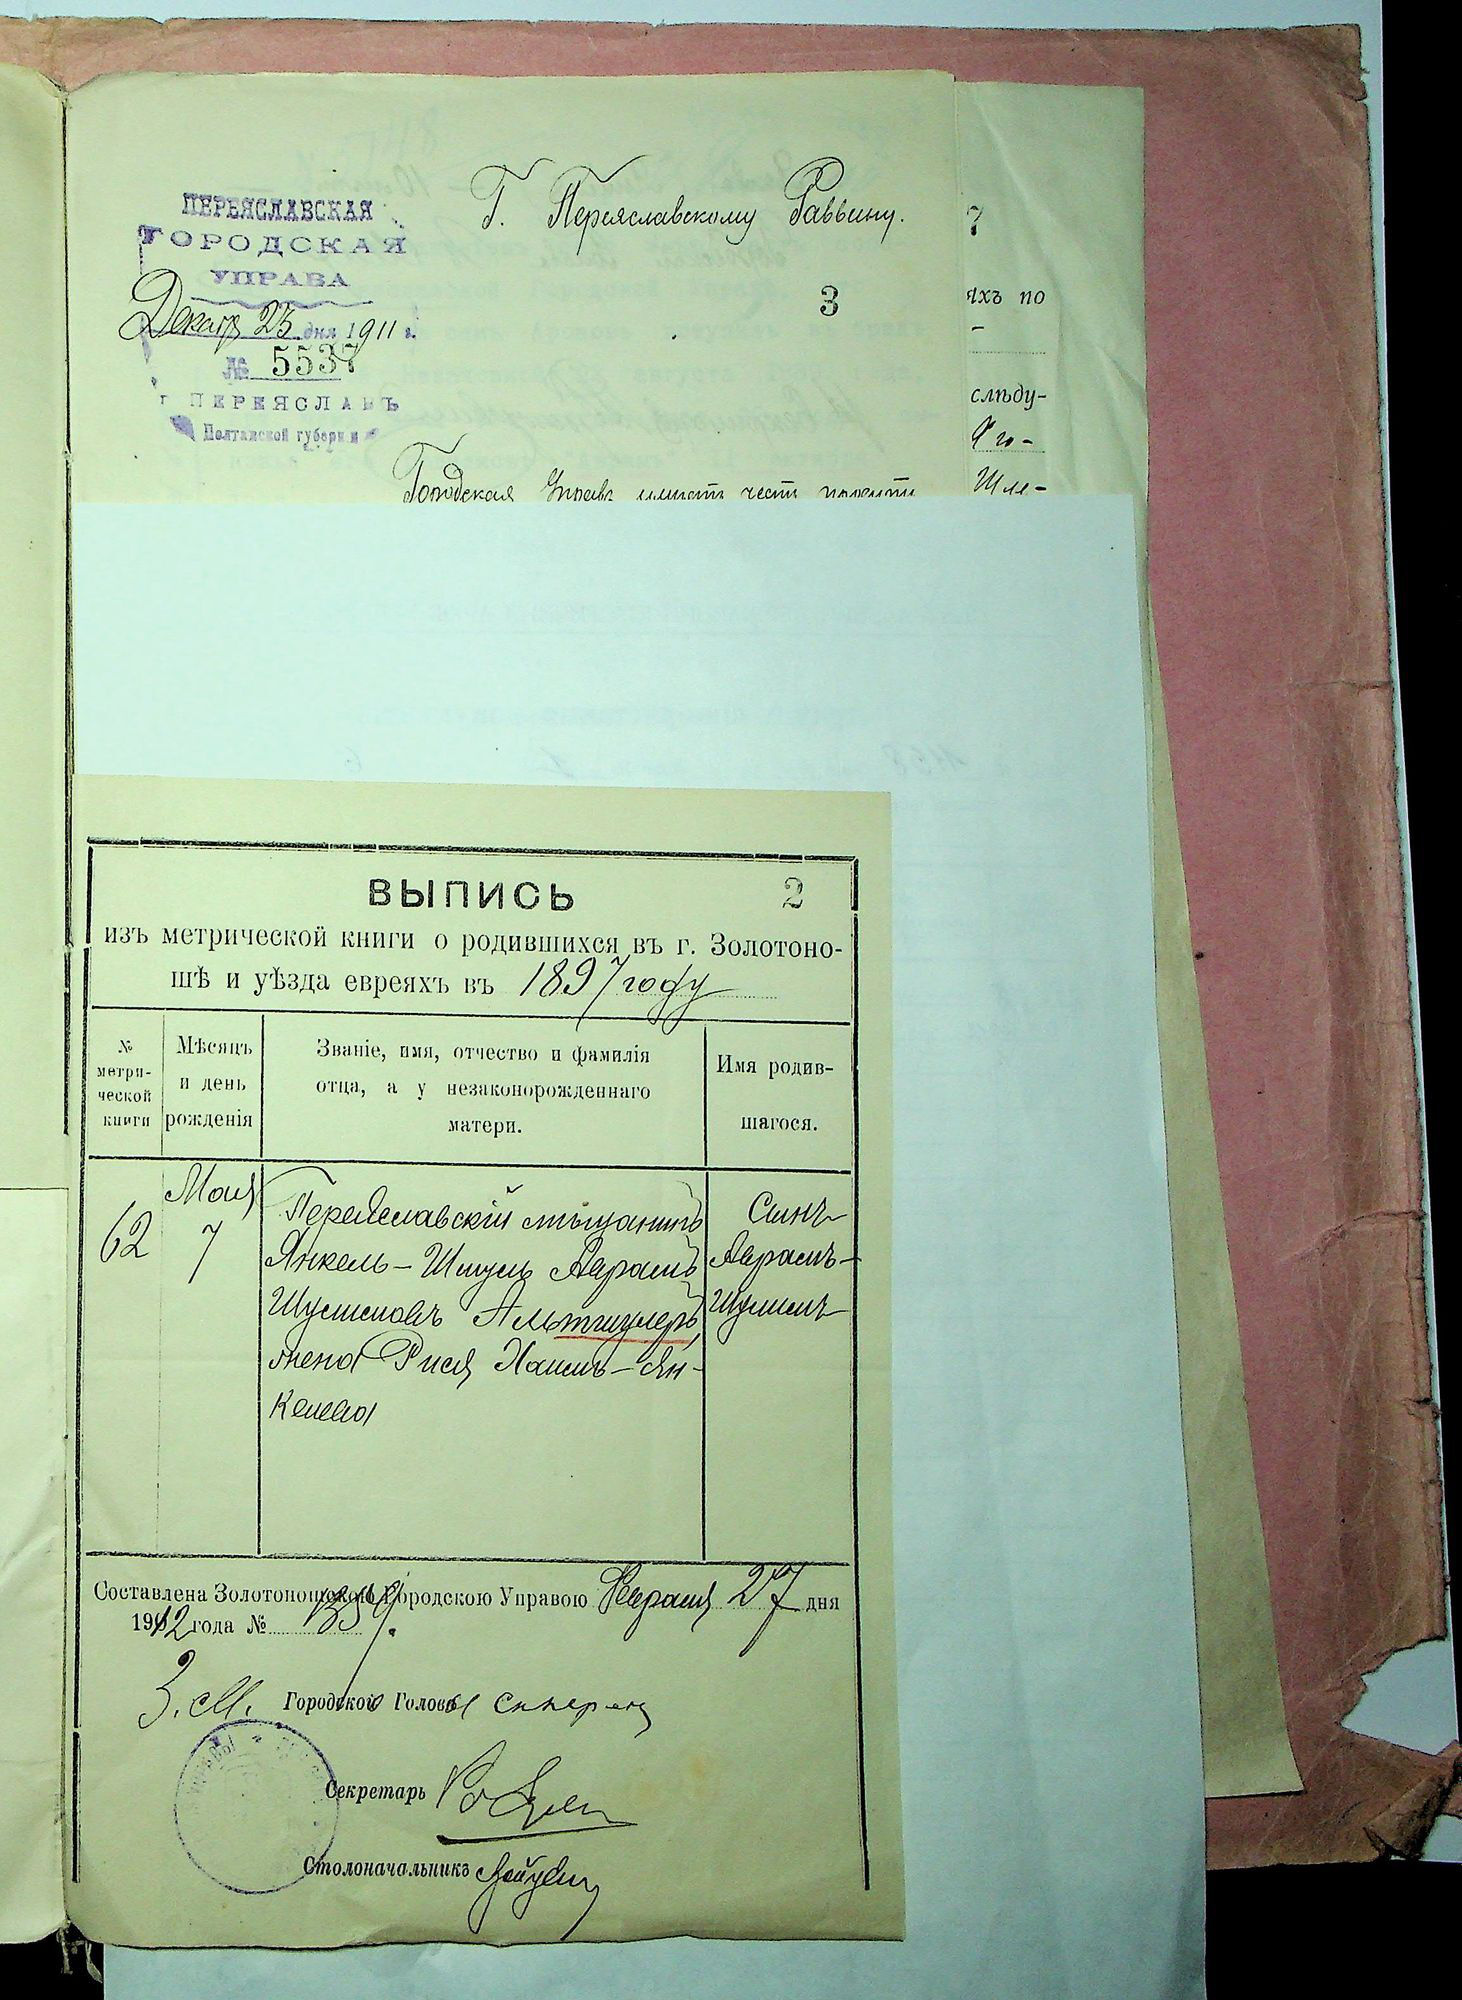 ПЕРЕЯСЛАВСКАЯ
ГОРОДСКАЯ
УПРАВА
Декабр 23 дня 1911 г.
№ 5537
г ПЕРЕЯСЛАВЪ
Полтавской губернии
Г. Переяславскому Раввину.
3
Городская Управа имѣетъ честь
7
яхъ по
-
слѣду-
Шле-
ВЫПИСЬ
2
изъ метрической книги о родившихся въ г. Золотоно-
шѣ и уѣзда евреяхъ въ 1897 году
№ метри-ческой книги
Мѣсяцъ и день рожденія
Званіе, имя, отчество и фамилія
отца, а у незаконорожденнаго
матери.
Имя родив-
шагося.
62
Мая
7
Переяславскій мѣщанинъ
Янкель-Шмуль Аврамъ
Шулимовъ Альтшулеръ,
жена Рися Хаимъ-Ян-
келева
Сынъ
Аврамъ-
Шулимъ
Составлена Золотоношскою Городскою Управою Февраля 27 дня
1912 года № 1359.
З. М. Городского Головы
Секретарь
Столоначальникъ